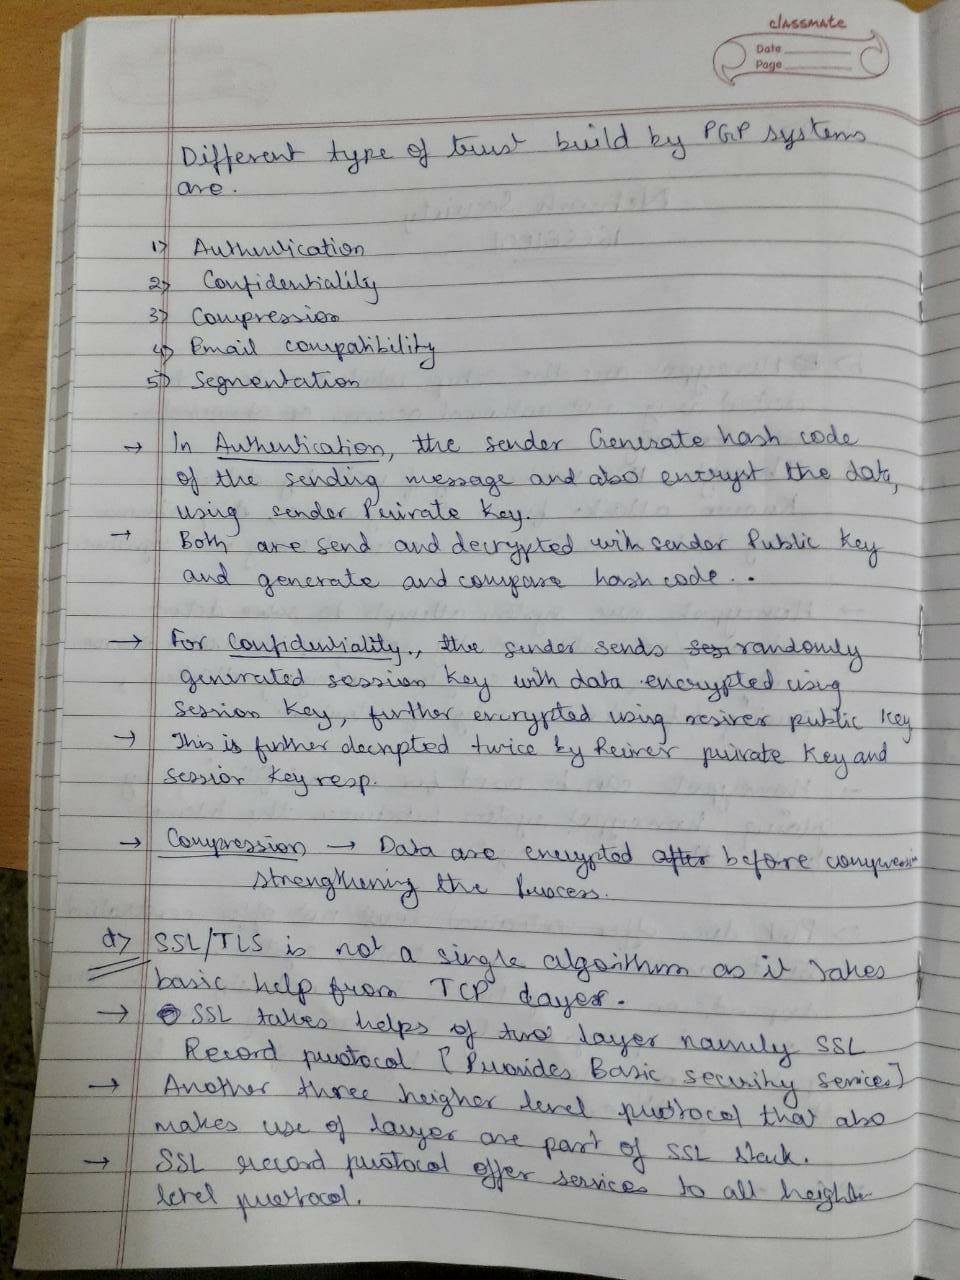 classmate
Date
Page
Different type of trust build by PGP systems
are.
1) Authentication
2) Confidentiality
3) Compression
4) Email compatibility
5) Segmentation
→ In Authentication, the sender Generate hash code
of the sending message and also entryst the data,
using sender Private Key.
→ Both are send and decrypted with sender Public Key
and generate and compare hash code..
→ For Confidentiality., the sender sends randomly
generated session key with data encrypted using
session Key, further encrypted using resiver public Key
→ This is further decrypted twice by Reiver private Key and
session Key resp.
→ Compression → Data are encrypted after before compression
strengthening the Process.
d) SSL/TLS is not a single algorithm as it takes
basic help from TCP layer.
→ SSL takes helps of two layer namely SSL
Record protocol [Provides Basic security services]
→ Another three heigher level protocol that also
makes use of layer are part of SSL stack.
→ SSL record protocol offer services to all height
level protocol.